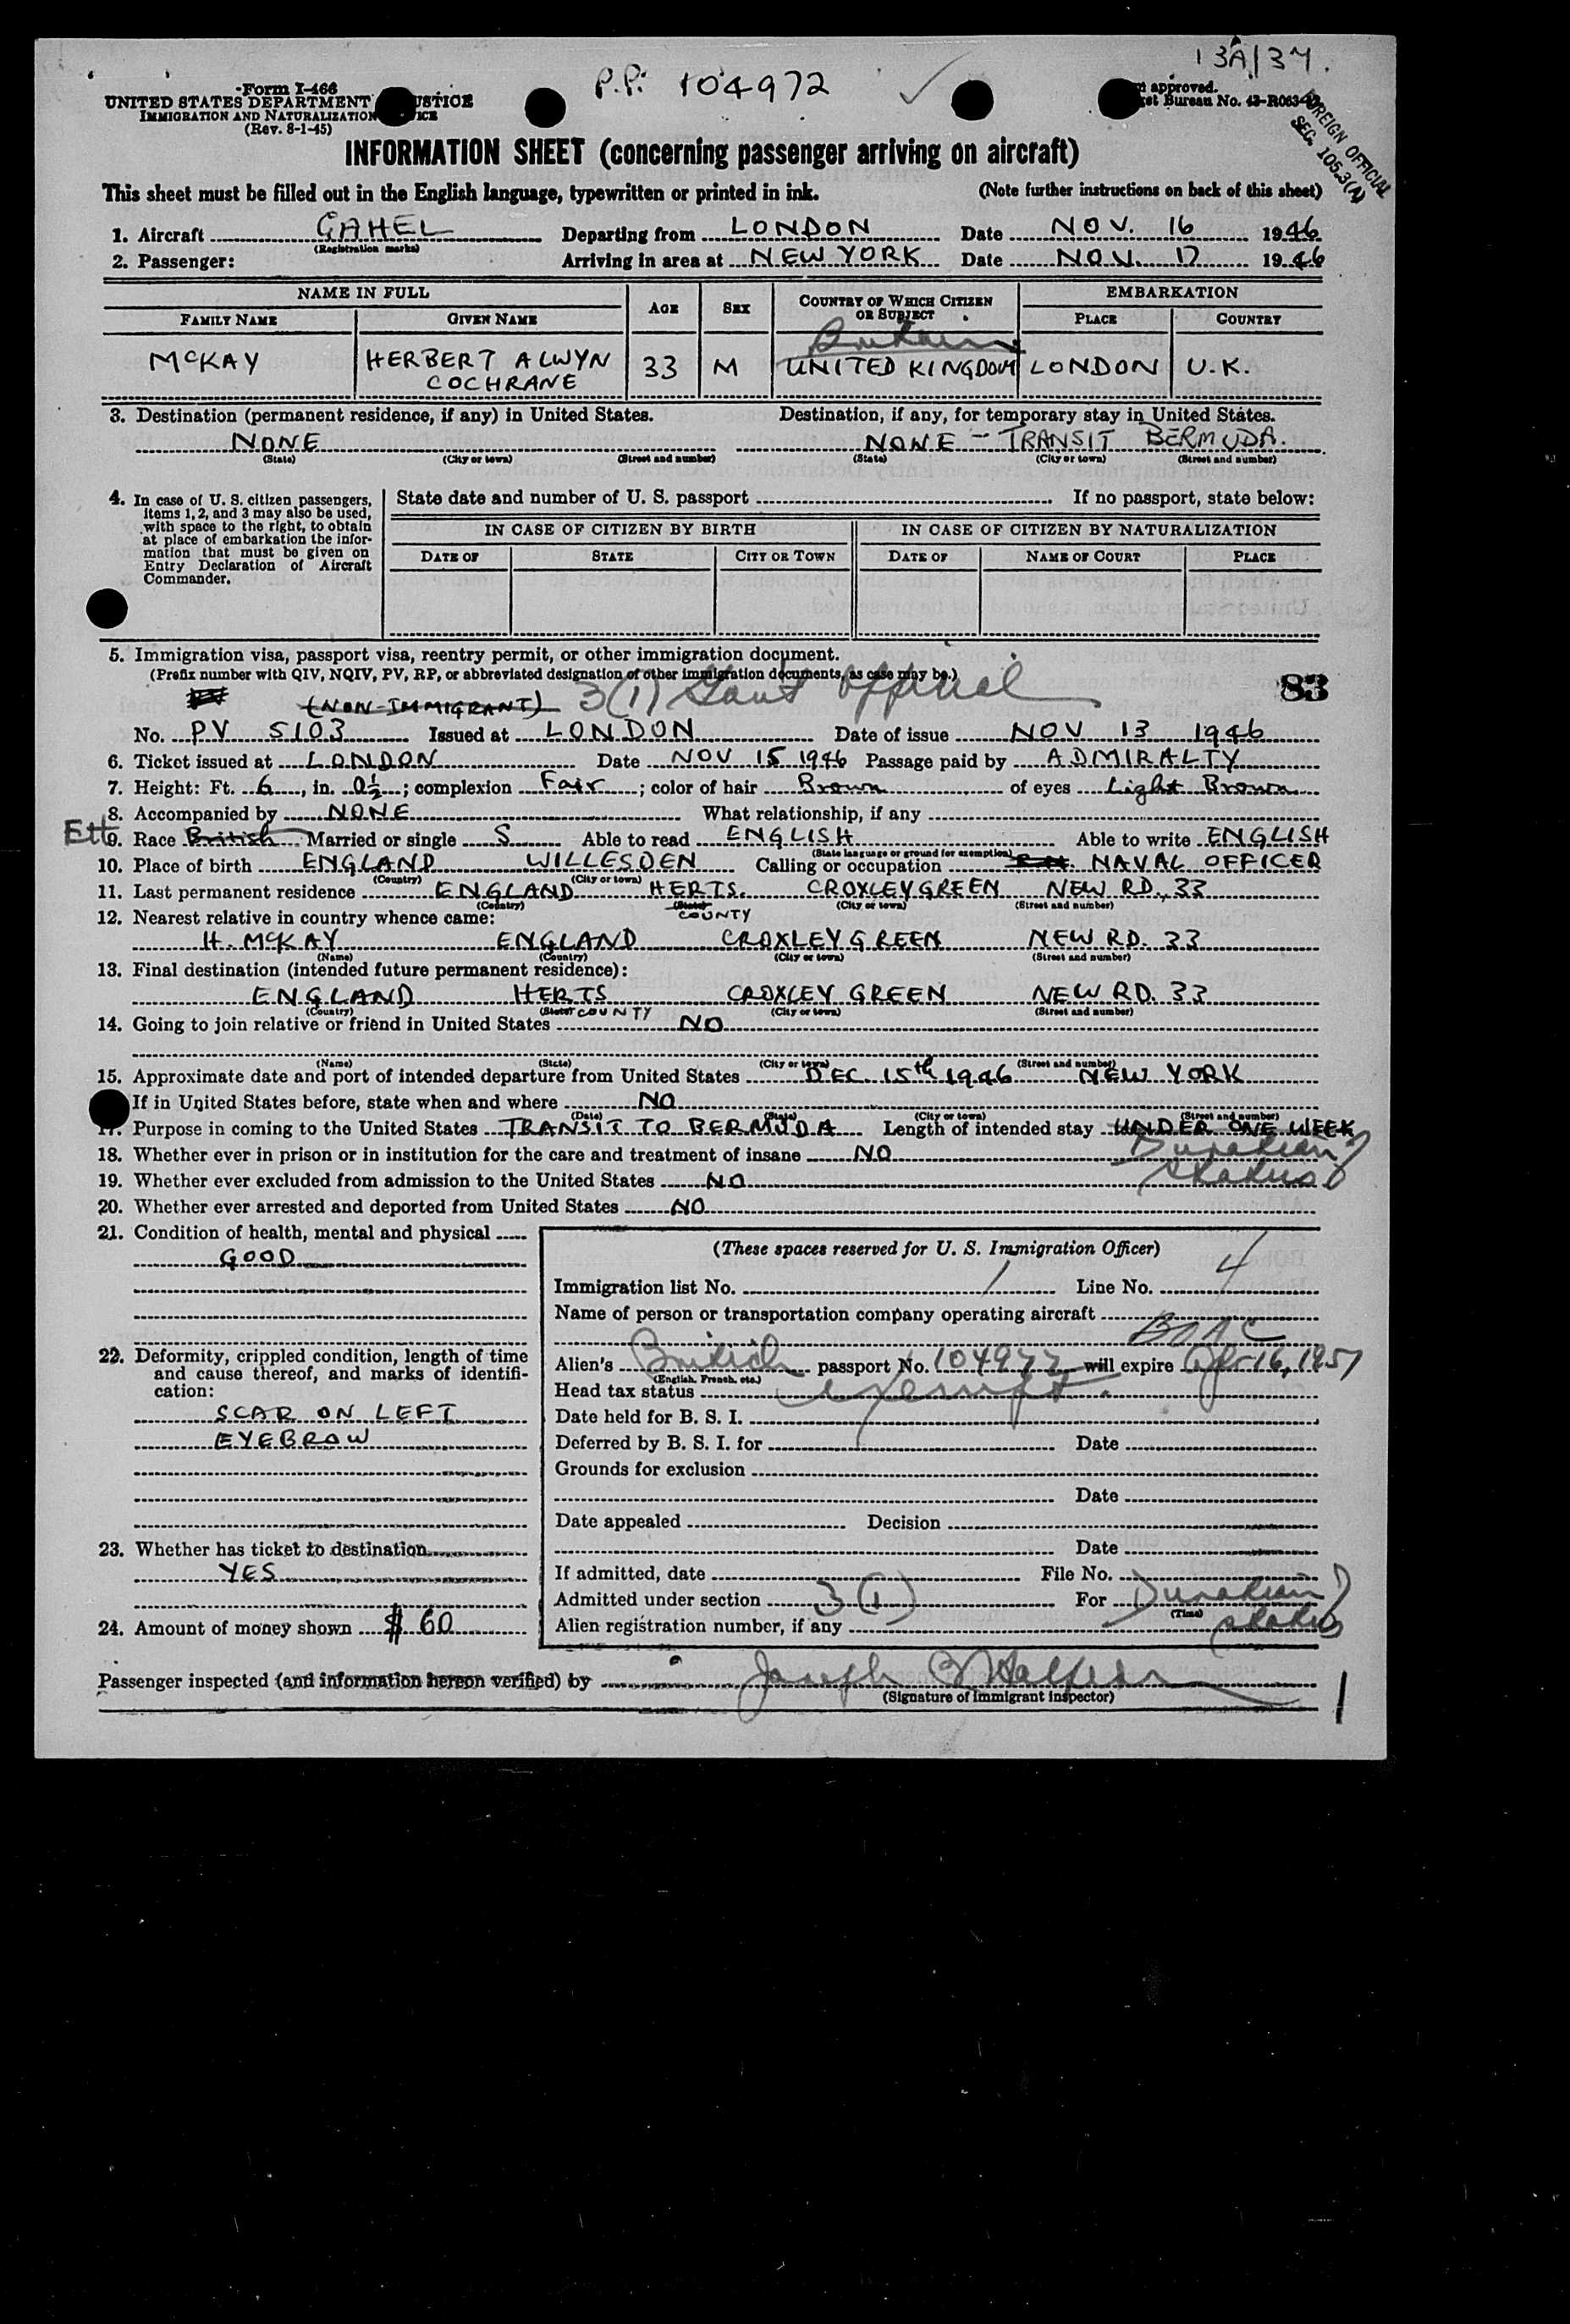 13A/37.
Form I-466
P.P. 104972
UNITED STATES DEPARTMENT JUSTICE
IMMIGRATION AND NATURALIZATION
(Rev. 8-1-45)
approved.
Bureau No. 43-R063
FOREIGN OFFICIAL
SEC. 105.3(A)
INFORMATION SHEET (concerning passenger arriving on aircraft)
This sheet must be filled out in the English language, typewritten or printed in ink. (Note further instructions on back of this sheet)
1. Aircraft GAHEL Departing from LONDON Date NOV. 16 1946
(Registration marks)
2. Passenger: Arriving in area at NEW YORK Date NOV. 17 1946
NAME IN FULL AGE SEX COUNTRY OF WHICH CITIZEN OR SUBJECT EMBARKATION
FAMILY NAME GIVEN NAME PLACE COUNTRY
McKAY HERBERT ALWYN COCHRANE 33 M UNITED KINGDOM LONDON U.K.
3. Destination (permanent residence, if any) in United States. Destination, if any, for temporary stay in United States.
NONE NONE - TRANSIT BERMUDA.
(State) (City or town) (Street and number) (State) (City or town) (Street and number)
4. In case of U. S. citizen passengers, items 1, 2, and 3 may also be used, with space to the right, to obtain at place of embarkation the information that must be given on Entry Declaration of Aircraft Commander.
State date and number of U. S. passport If no passport, state below:
IN CASE OF CITIZEN BY BIRTH IN CASE OF CITIZEN BY NATURALIZATION
DATE OF STATE CITY OR TOWN DATE OF NAME OF COURT PLACE
5. Immigration visa, passport visa, reentry permit, or other immigration document.
(Prefix number with QIV, NQIV, PV, RP, or abbreviated designation of other immigration documents, as case may be.)
(NON-IMMIGRANT) 3(1) Govt Official 83
No. PV 5103 Issued at LONDON Date of issue NOV 13 1946
6. Ticket issued at LONDON Date NOV 15 1946 Passage paid by ADMIRALTY
7. Height: Ft. 6, in. 0½; complexion Fair; color of hair Brown of eyes Light Brown
8. Accompanied by NONE What relationship, if any
9. Race British Married or single S Able to read ENGLISH Able to write ENGLISH
(State language or ground for exemption)
10. Place of birth ENGLAND WILLESDEN Calling or occupation R.N. NAVAL OFFICER
(Country) (City or town)
11. Last permanent residence ENGLAND HERTS. CROXLEY GREEN NEW RD., 33
(Country) (State) COUNTY (City or town) (Street and number)
12. Nearest relative in country whence came:
H. McKAY ENGLAND CROXLEY GREEN NEW RD. 33
(Name) (Country) (City or town) (Street and number)
13. Final destination (intended future permanent residence):
ENGLAND HERTS CROXLEY GREEN NEW RD. 33
(Country) (State) COUNTY (City or town) (Street and number)
14. Going to join relative or friend in United States NO
(Name) (State) (City or town) (Street and number)
15. Approximate date and port of intended departure from United States DEC. 15th 1946 NEW YORK
If in United States before, state when and where NO
(Date) (State) (City or town) (Street and number)
17. Purpose in coming to the United States TRANSIT TO BERMUDA Length of intended stay UNDER ONE WEEK
Duration of status
18. Whether ever in prison or in institution for the care and treatment of insane NO
19. Whether ever excluded from admission to the United States NO
20. Whether ever arrested and deported from United States NO
21. Condition of health, mental and physical
GOOD
22. Deformity, crippled condition, length of time and cause thereof, and marks of identification:
SCAR ON LEFT
EYEBROW
23. Whether has ticket to destination
YES
24. Amount of money shown $ 60
(These spaces reserved for U. S. Immigration Officer)
Immigration list No. 1 Line No. 4
Name of person or transportation company operating aircraft
BOAC
Alien's British passport No. 104972 will expire Apr 16, 1951
(English, French, etc.)
Head tax status exempt.
Date held for B. S. I.
Deferred by B. S. I. for Date
Grounds for exclusion
Date
Date appealed Decision
Date
If admitted, date File No.
Admitted under section 3(1) For Duration of status
(Time)
Alien registration number, if any
Passenger inspected (and information hereon verified) by Joseph
(Signature of Immigrant Inspector)
1